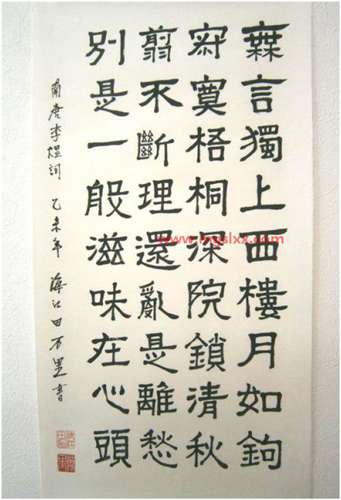 無言獨上西樓月如鉤
寂寞梧桐深院鎖清秋
翦不斷理還亂是離愁
別是一般滋味在心頭
南唐李煜詞 乙未年 江田 書